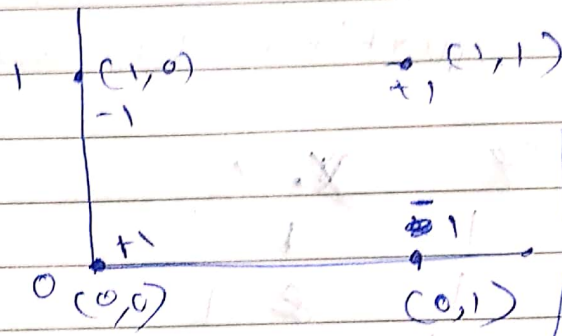 1 (1,0) (1,1)
-1 +1
+1 -1
0 (0,0) (0,1)